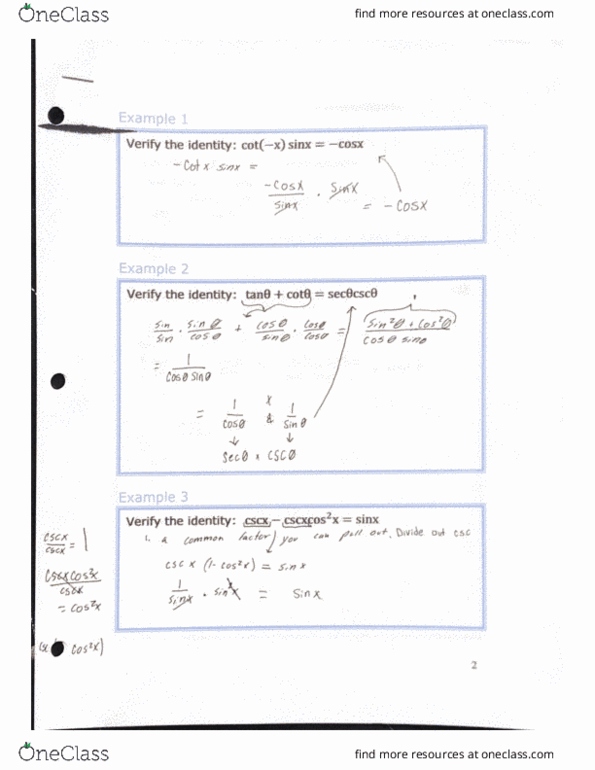 OneClass
find more resources at oneclass.com
Example 1
Verify the identity: cot(−x) sinx = −cosx
- Cot x sinx =
-Cosx/sinx · sinx = - Cosx
Example 2
Verify the identity: tanθ + cotθ = secθcscθ
sin/sin · sinθ/cosθ + cosθ/sinθ · cosθ/cosθ = sin²θ + cos²θ/cosθ sinθ
= 1/cosθ sinθ
= 1/cosθ x & 1/sinθ
secθ x cscθ
Example 3
Verify the identity: cscx − cscxcos²x = sinx
1. a common factor) you can pull out. Divide out csc
csc x (1- cos²x) = sin x
1/sinx · sin²x = sinx
cscx/cscx = 1
cscxcos²x/cscx
= cos²x
cos²x)
2
OneClass
find more resources at oneclass.com